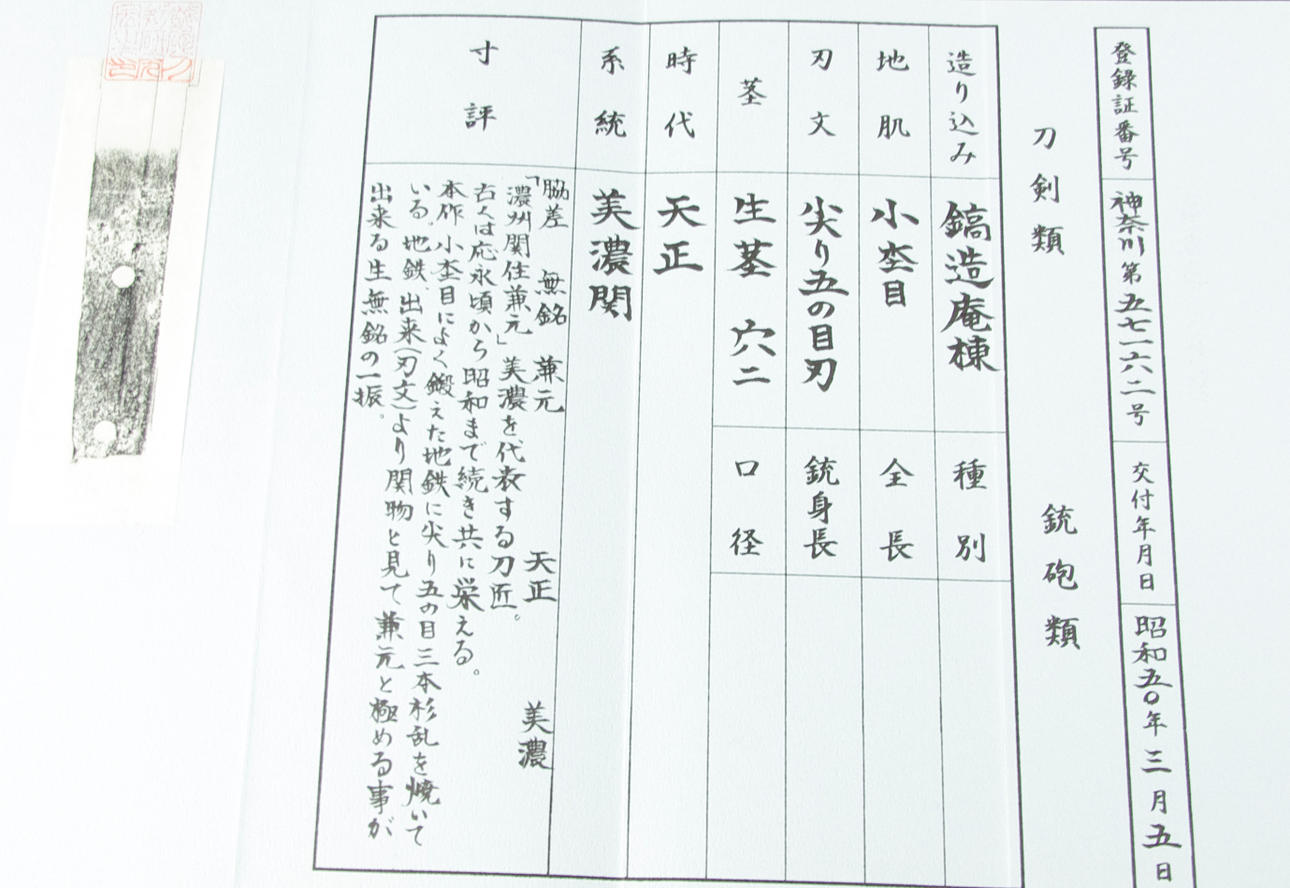 登録証番号 神奈川第五七一六二号 交付年月日 昭和五〇年三月五日
刀剣類 銃砲類
造り込み 鎬造庵棟 種別
地肌 小杢目 全長
刃文 尖り五の目刃 銃身長
茎 生茎 穴二 口径
時代 天正
系統 美濃関
寸評
脇差 無銘 兼元 天正 美濃
「濃州関住兼元」美濃を代表する刀匠。
古くは応永頃から昭和まで続き共に栄える。
本作 小杢目によく鍛えた地鉄に尖り五の目三本杉乱を焼いて
いる。地鉄、出来(刃文)より関物と見て兼元と極める事が
出来る生無銘の一振。